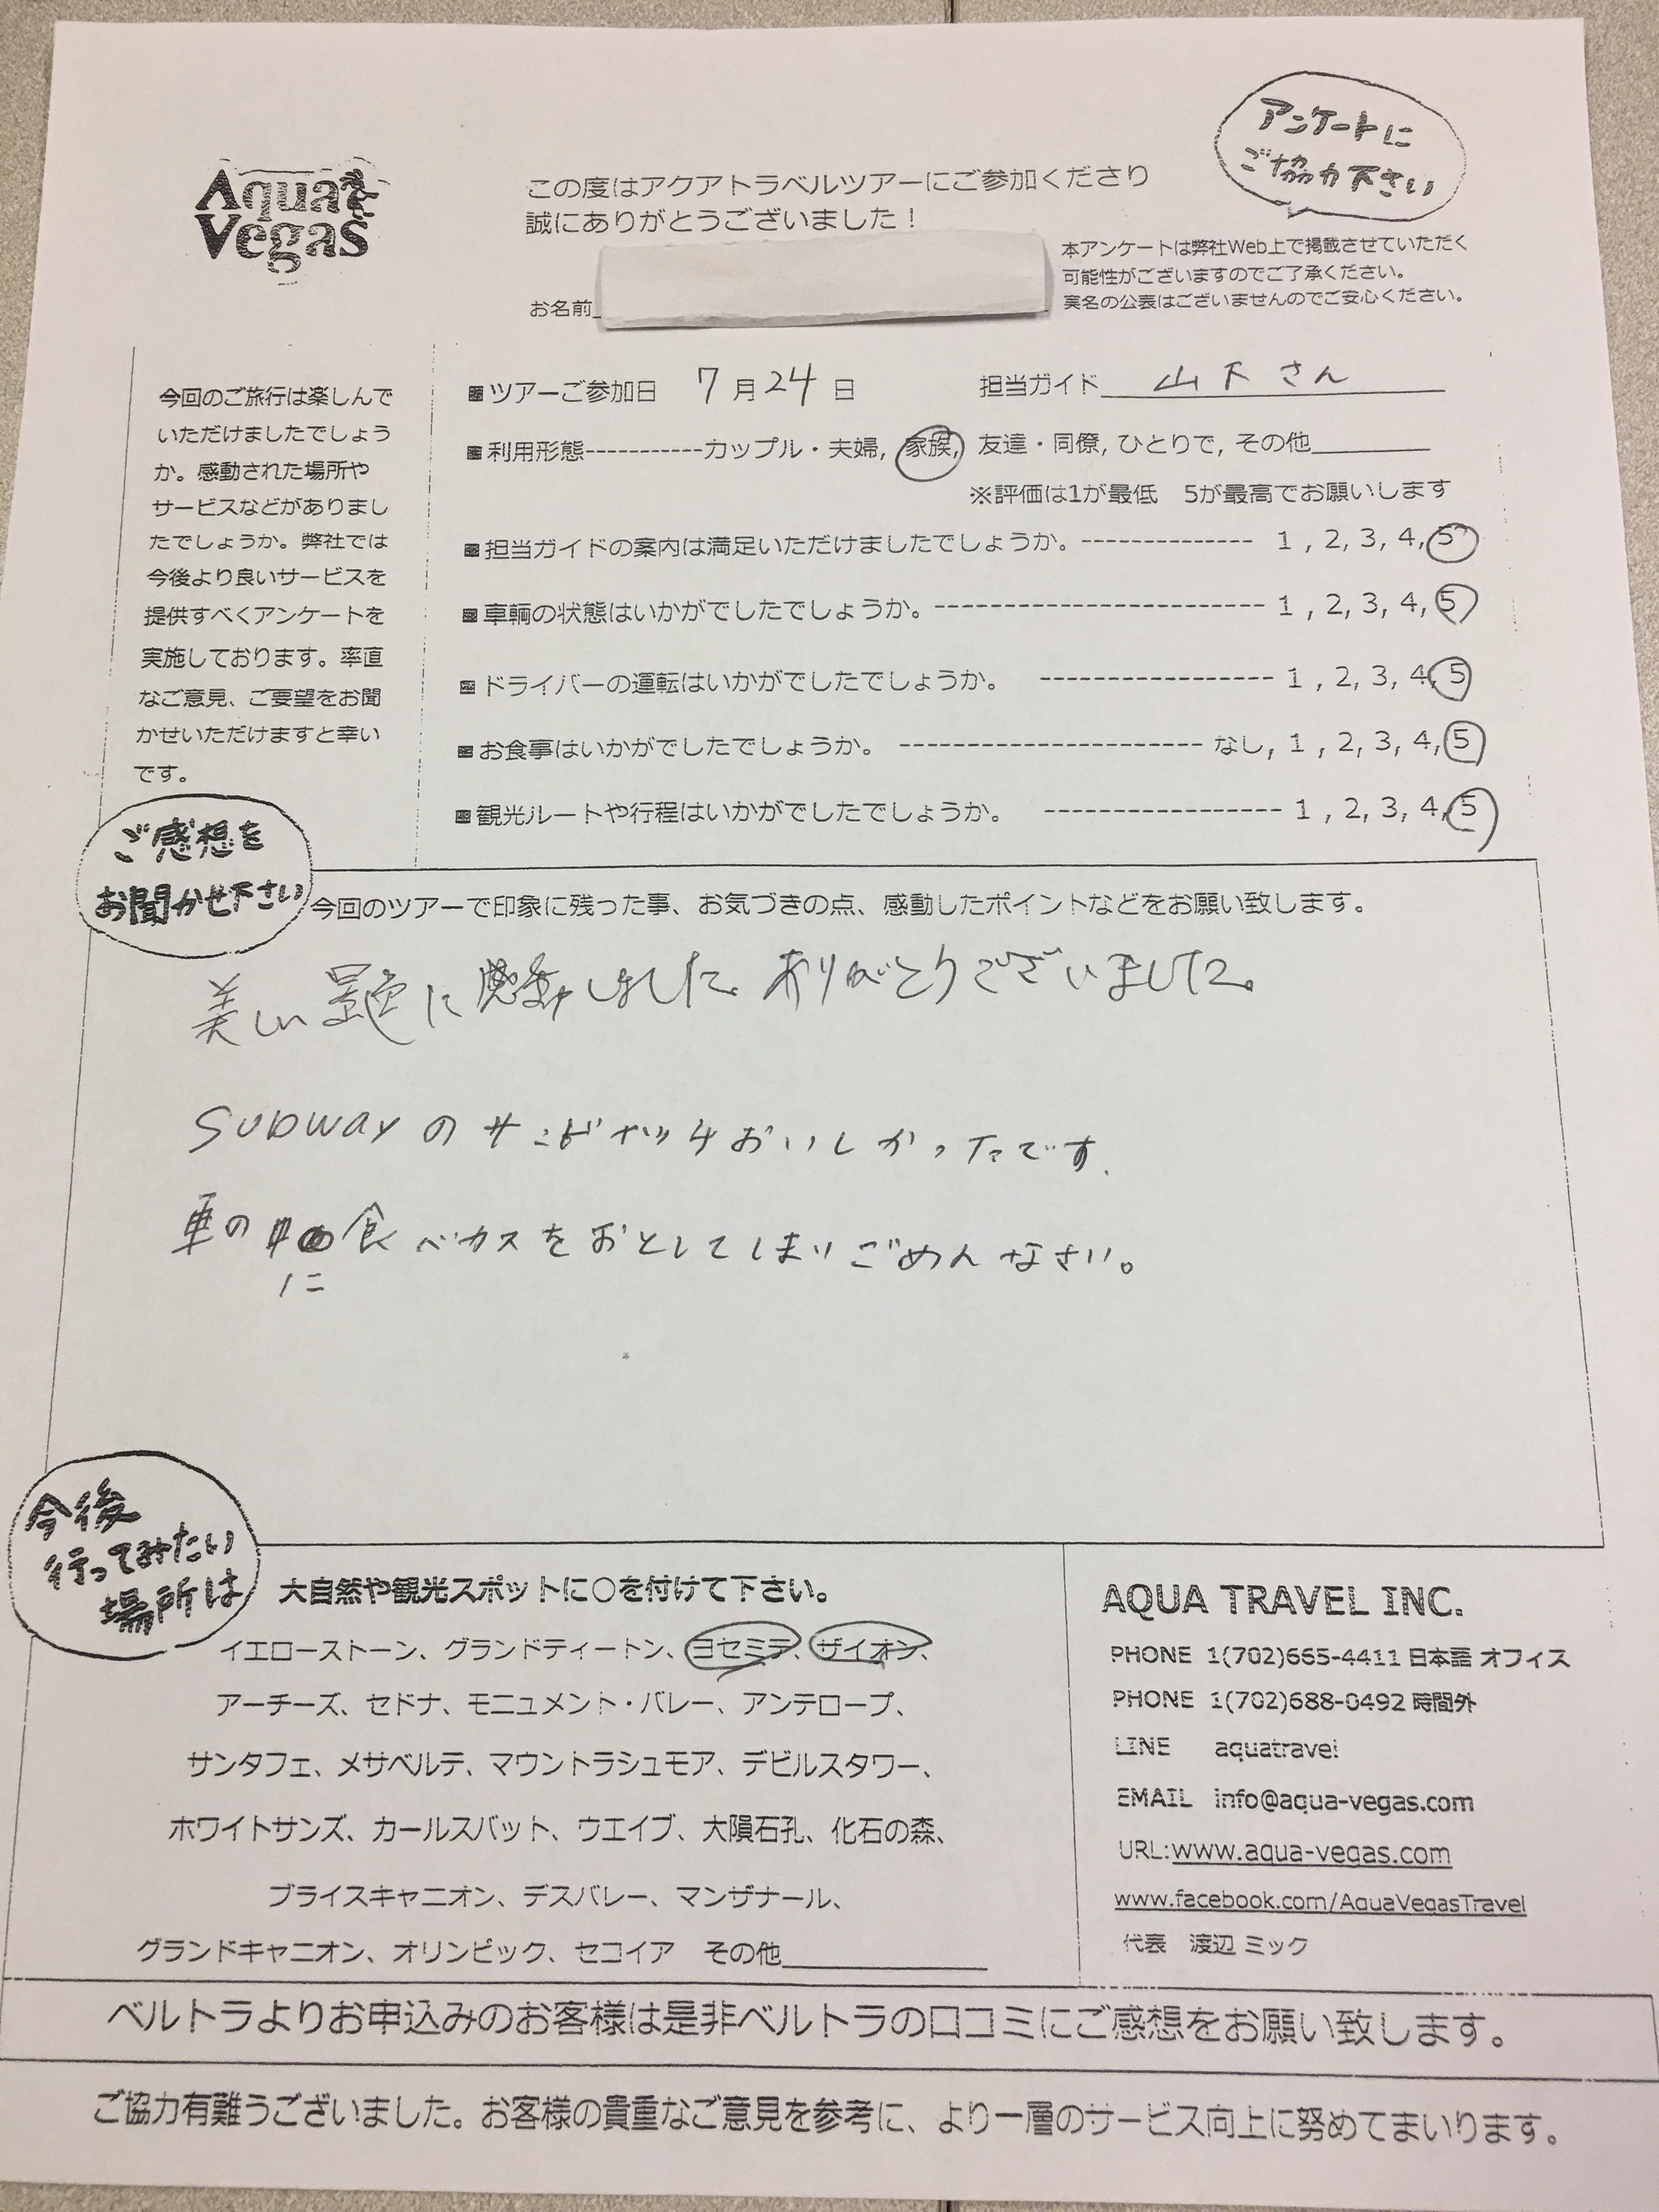 アンケートに
ご協力下さい
Aqua
Vegas
この度はアクアトラベルツアーにご参加くださり
誠にありがとうございました！
お名前
本アンケートは弊社Web上で掲載させていただく
可能性がございますのでご了承ください。
実名の公表はございませんのでご安心ください。
今回のご旅行は楽しんで
いただけましたでしょう
か。感動された場所や
サービスなどがありまし
たでしょうか。弊社では
今後より良いサービスを
提供すべくアンケートを
実施しております。率直
なご意見、ご要望をお聞
かせいただけますと幸い
です。
■ツアーご参加日 7月24日 担当ガイド 山下さん
■利用形態-----------カップル・夫婦, 家族, 友達・同僚, ひとりで, その他
※評価は1が最低 5が最高でお願いします
■担当ガイドの案内は満足いただけましたでしょうか。------------- 1 , 2, 3, 4, 5
■車輌の状態はいかがでしたでしょうか。------------------------- 1 , 2, 3, 4, 5
■ドライバーの運転はいかがでしたでしょうか。 ----------------- 1 , 2, 3, 4, 5
■お食事はいかがでしたでしょうか。 ---------------------- なし, 1 , 2, 3, 4, 5
■観光ルートや行程はいかがでしたでしょうか。 ----------------- 1 , 2, 3, 4, 5
ご感想を
お聞かせ下さい
今回のツアーで印象に残った事、お気づきの点、感動したポイントなどをお願い致します。
美しい景色に感動しました。ありがとうございました。
SUBWAYのサンドイッチおいしかったです.
車の中に食べカスをおとしてしまいごめんなさい。
今後
行ってみたい
場所は
大自然や観光スポットに○を付けて下さい。
イエローストーン、グランドティートン、ヨセミテ、ザイオン、
アーチーズ、セドナ、モニュメント・バレー、アンテロープ、
サンタフェ、メサベルテ、マウントラシュモア、デビルスタワー、
ホワイトサンズ、カールスバット、ウエイブ、大隕石孔、化石の森、
ブライスキャニオン、デスバレー、マンザナール、
グランドキャニオン、オリンピック、セコイア その他
AQUA TRAVEL INC.
PHONE 1(702)665-4411 日本語 オフィス
PHONE 1(702)688-0492 時間外
LINE aquatravel
EMAIL info@aqua-vegas.com
URL:www.aqua-vegas.com
www.facebook.com/AquaVegasTravel
代表 渡辺 ミック
ベルトラよりお申込みのお客様は是非ベルトラの口コミにご感想をお願い致します。
ご協力有難うございました。お客様の貴重なご意見を参考に、より一層のサービス向上に努めてまいります。